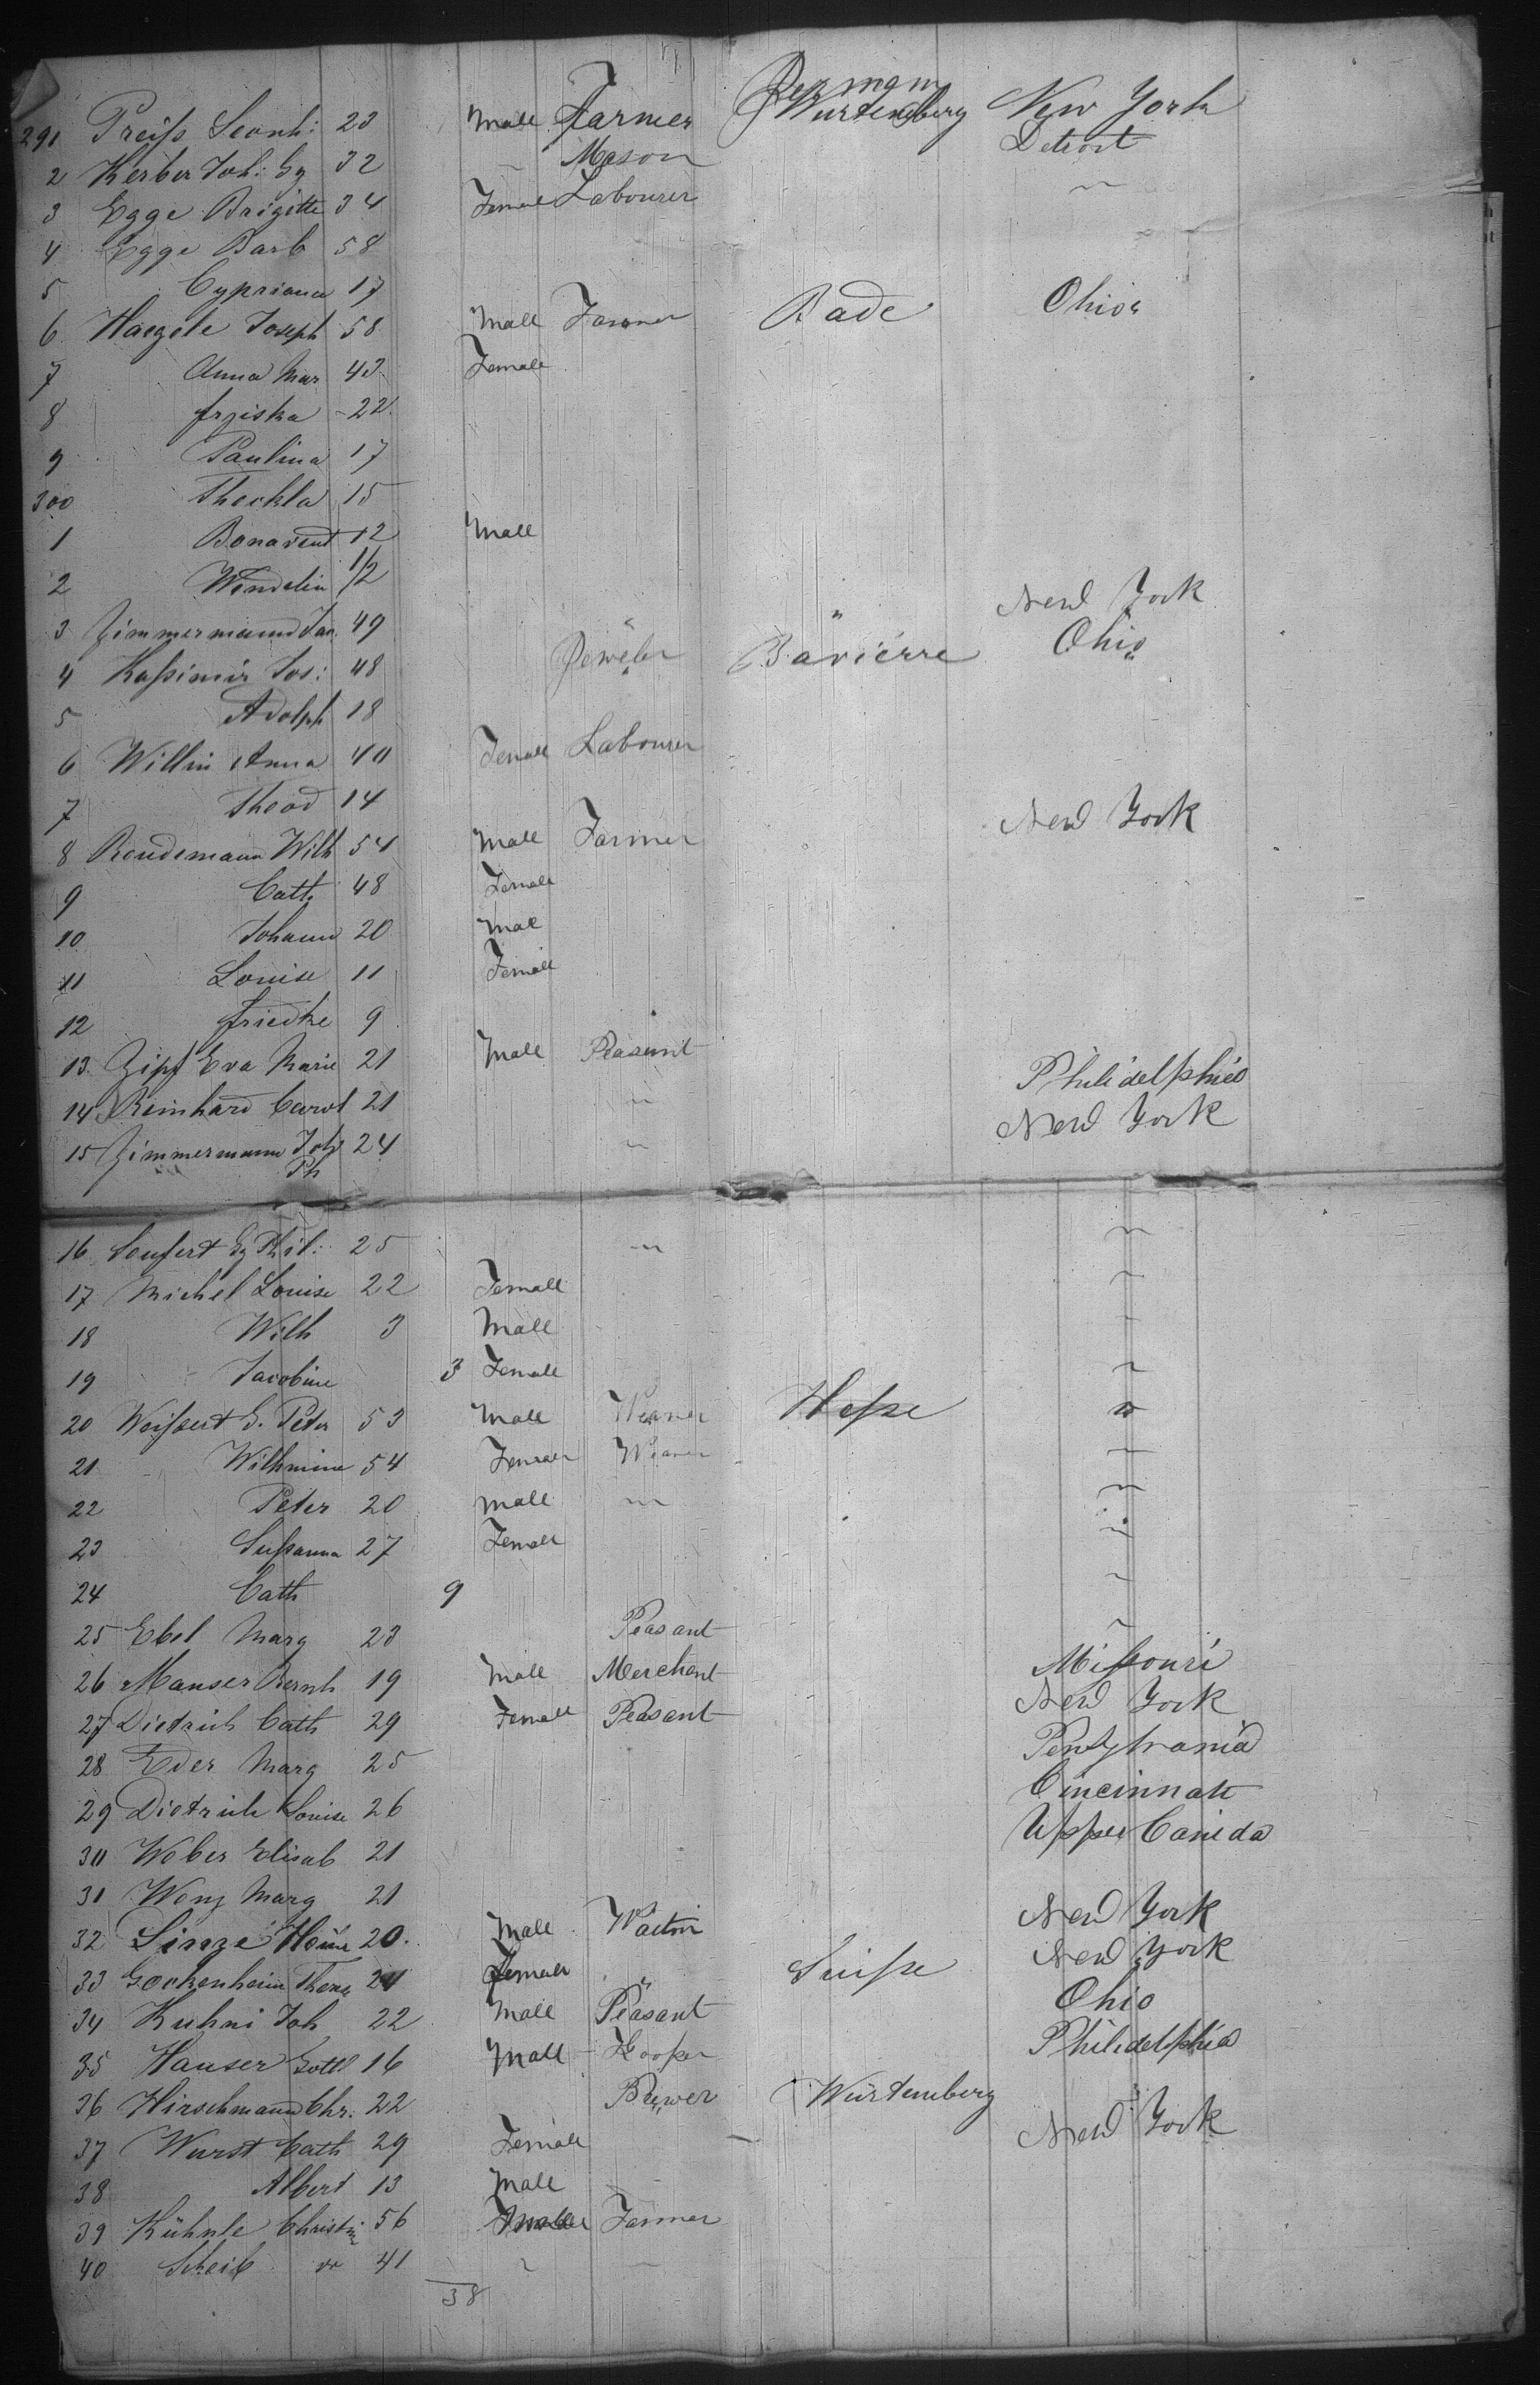 Germany
291 Preiſs Leonh: 23 Male Farmer Wurtemberg New York
2 Kerber Joh: Gg 32 ~ Mason Detroit
3 Egge Brigitte 34 Female Labourer ~
4 Egge Barb 58
5 Cypriana 17
6 Haegele Joseph 58 Male Farmer Bade Ohio
7 Anna Mar 43 Female
8 frziska 22
9 Paulina 17
300 Theckla 15
1 Bonavent 12 Male
2 Wendelin 1/2
3 Zimmermann Jac 49 " New York
4 Kaſsimir Jos: 48 Jeweler Bavierre Ohio
5 Adolph 18
6 Willin Anna 40 Female Labourer
7 Theod 14
8 Wilh 54 Male Farmer New York
9 Cath 48 Female
10 Johann 20 Mal
11 Louise 11 Female
12 friedke 9
13 Zipf Eva Marie 21 Male Peasant Philidelphia
14 Reinhard Carol 21 ~ New York
15 Zimmermann Joh 24 ~
Ph
16 Gg Phil: 25 ~ ~
17 Michel Louise 22 Female ~
18 Wilh 3 Male ~
19 Jacobine 3 Female ~
20 Weiſsert G. Peter 53 Male Weaver Heſse ~
21 Wilhmine 54 Female Weaver ~
22 Peter 20 Male ~ ~
23 Suſsanna 27 Female ~
24 Cath 9 ~
25 Ebel Marg 23 Peasant ~
26 Manser Bernh 19 Male Merchent Miſsouri
27 Dietrich Cath 29 Female Peasant New York
28 Eder Marg 25 Pensylvania
29 Dietrich Louise 26 Cincinnati
30 Weber Elisab 21 Upper Caneda
31 Wenz Marg 21
32 20. Male New York
33 Gockenheim 21 Female Suiſse New York
34 Kuhni Joh 22 Male Peasant Ohio
35 Hauser Gottl 16 Male Philidelphia
36 Hirschmann Chr. 22 Brewer Würtemberg
37 Wurst Cath 29 Female New York
38 Albert 13 Male
39 Kühnle Christine 56 Farmer
40 Scheib 41 ~ ~
38